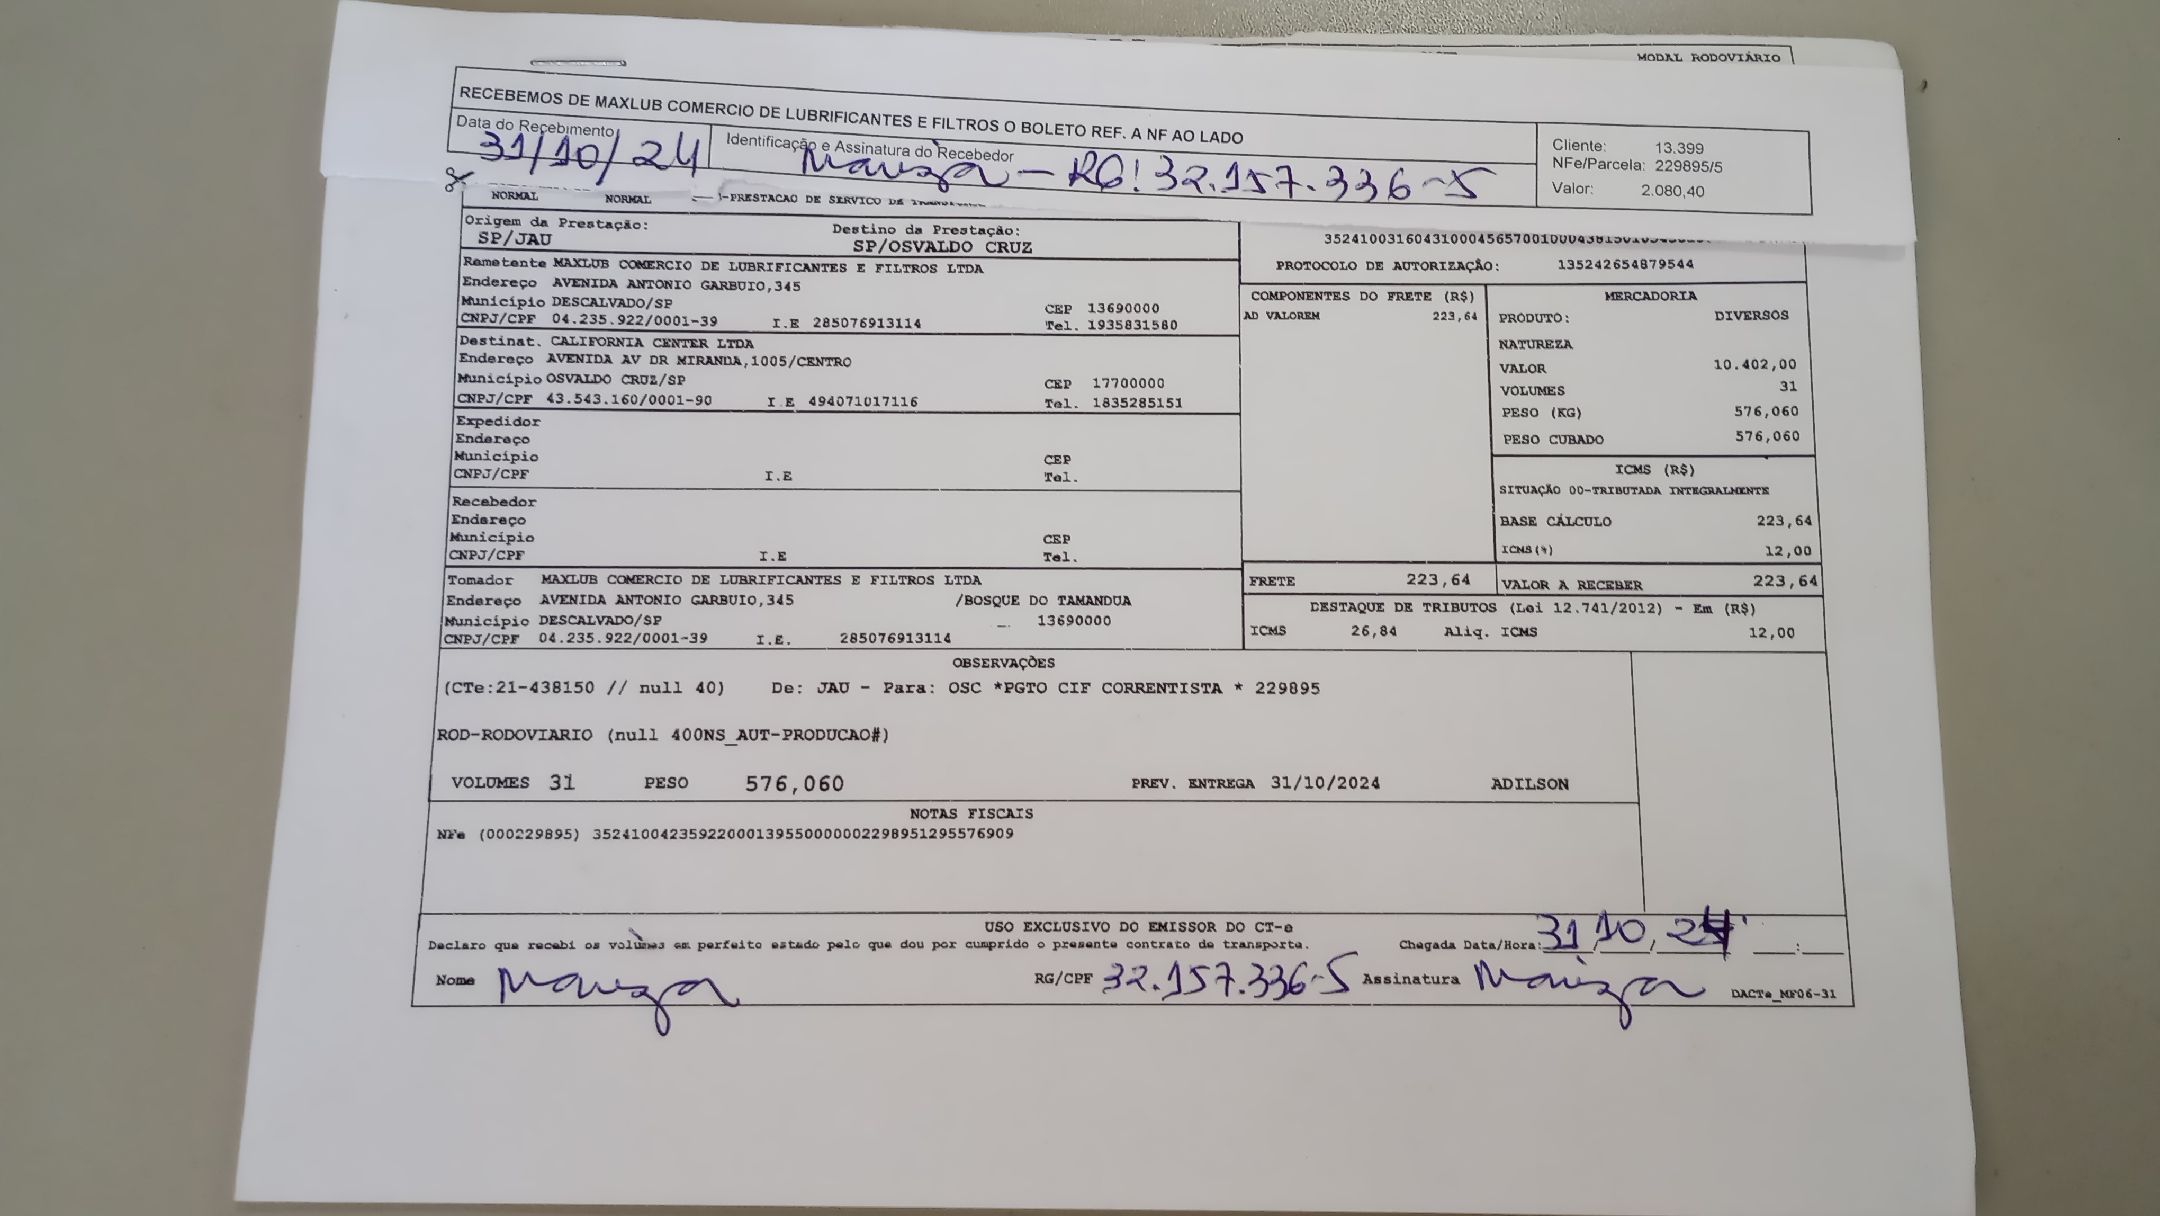 MODAL RODOVIÁRIO
RECEBEMOS DE MAXLUB COMERCIO DE LUBRIFICANTES E FILTROS O BOLETO REF. A NF AO LADO
Data do Recebimento Identificação e Assinatura do Recebedor
31/10/24 Mariza - RG: 32.157.336-5
Cliente: 13.399
NFe/Parcela: 229895/5
Valor: 2.080,40
NORMAL NORMAL -PRESTACAO DE SERVICO DE
Origem da Prestação: Destino da Prestação:
SP/JAU SP/OSVALDO CRUZ
PROTOCOLO DE AUTORIZAÇÃO: 135242654879544
Remetente MAXLUB COMERCIO DE LUBRIFICANTES E FILTROS LTDA
Endereço AVENIDA ANTONIO GARBUIO,345
Município DESCALVADO/SP CEP 13690000
CNPJ/CPF 04.235.922/0001-39 I.E 285076913114 Tel. 1935831580
Destinat. CALIFORNIA CENTER LTDA
Endereço AVENIDA AV DR MIRANDA,1005/CENTRO
Município OSVALDO CRUZ/SP CEP 17700000
CNPJ/CPF 43.543.160/0001-90 I.E 494071017116 Tel. 1835285151
Expedidor
Endereço
Município CEP
CNPJ/CPF I.E Tel.
Recebedor
Endereço
Município CEP
CNPJ/CPF I.E Tel.
Tomador MAXLUB COMERCIO DE LUBRIFICANTES E FILTROS LTDA
Endereço AVENIDA ANTONIO GARBUIO,345 /BOSQUE DO TAMANDUA
Município DESCALVADO/SP 13690000
CNPJ/CPF 04.235.922/0001-39 I.E. 285076913114
COMPONENTES DO FRETE (R$)
AD VALOREM 223,64
MERCADORIA
PRODUTO: DIVERSOS
NATUREZA
VALOR 10.402,00
VOLUMES 31
PESO (KG) 576,060
PESO CUBADO 576,060
ICMS (R$)
SITUAÇÃO 00-TRIBUTADA INTEGRALMENTE
BASE CÁLCULO 223,64
ICMS(%) 12,00
FRETE 223,64 VALOR A RECEBER 223,64
DESTAQUE DE TRIBUTOS (Lei 12.741/2012) - Em (R$)
ICMS 26,84 Aliq. ICMS 12,00
OBSERVAÇÕES
(CTe:21-438150 // null 40) De: JAU - Para: OSC *PGTO CIF CORRENTISTA * 229895
ROD-RODOVIARIO (null 400NS_AUT-PRODUCAO#)
VOLUMES 31 PESO 576,060 PREV. ENTREGA 31/10/2024 ADILSON
NOTAS FISCAIS
NFe (000229895) 35241004235922000139550000002298951295576909
USO EXCLUSIVO DO EMISSOR DO CT-e
Declaro que recebi os volumes em perfeito estado pelo que dou por cumprido o presente contrato de transporte. Chegada Data/Hora: 31/10/24 __:__
Nome Mariza RG/CPF 32.157.336-5 Assinatura Mariza
DACTe_MF06-31